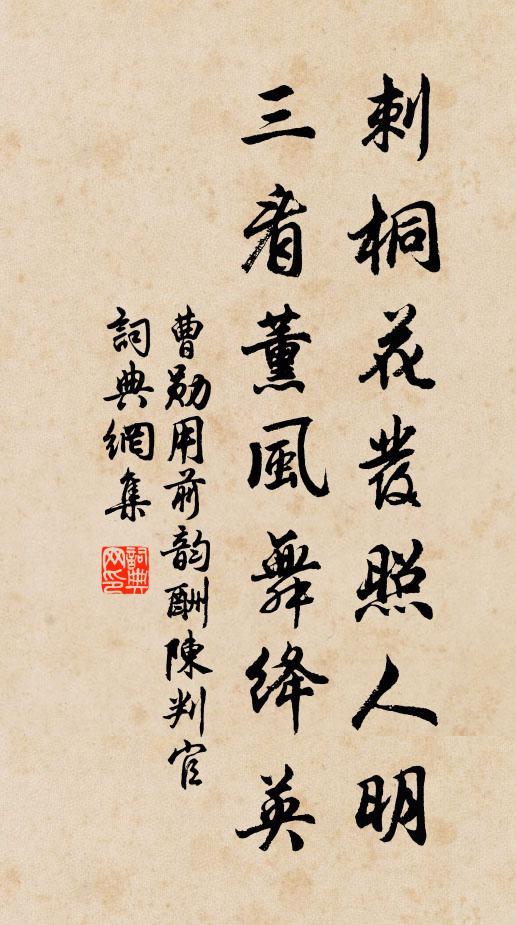 刺桐花發照人明
三看薰風舞绛英
曹勛用前韵酬陳判官
詞典網集
詞典网印